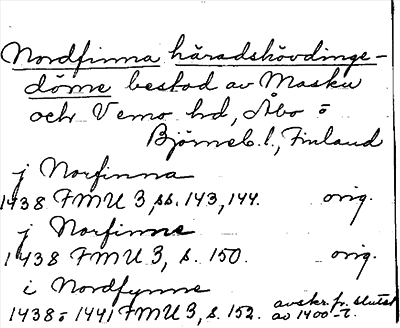 Nordfinna häradshövdinge-
döme bestod av Masku
och Vemo hd, Åbo o
Björneb. l., Finland
j Norfinna
1438 FMU 3, ss. 143, 144. orig.
j Norfinne
1438 FMU 3, s. 150. orig.
i Nordfynne
1438-1441 FMU 3, s. 152. avskr. fr. slutet
av 1400-t.